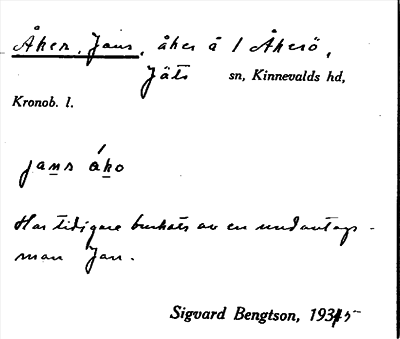 Åker, Jans, åker å 1 Åkerö,
Jäts sn, Kinnevalds hd,
Kronob. l.
jans åko
Har tidigare brukats av en undantags-
man Jan.
Sigvard Bengtson, 1935